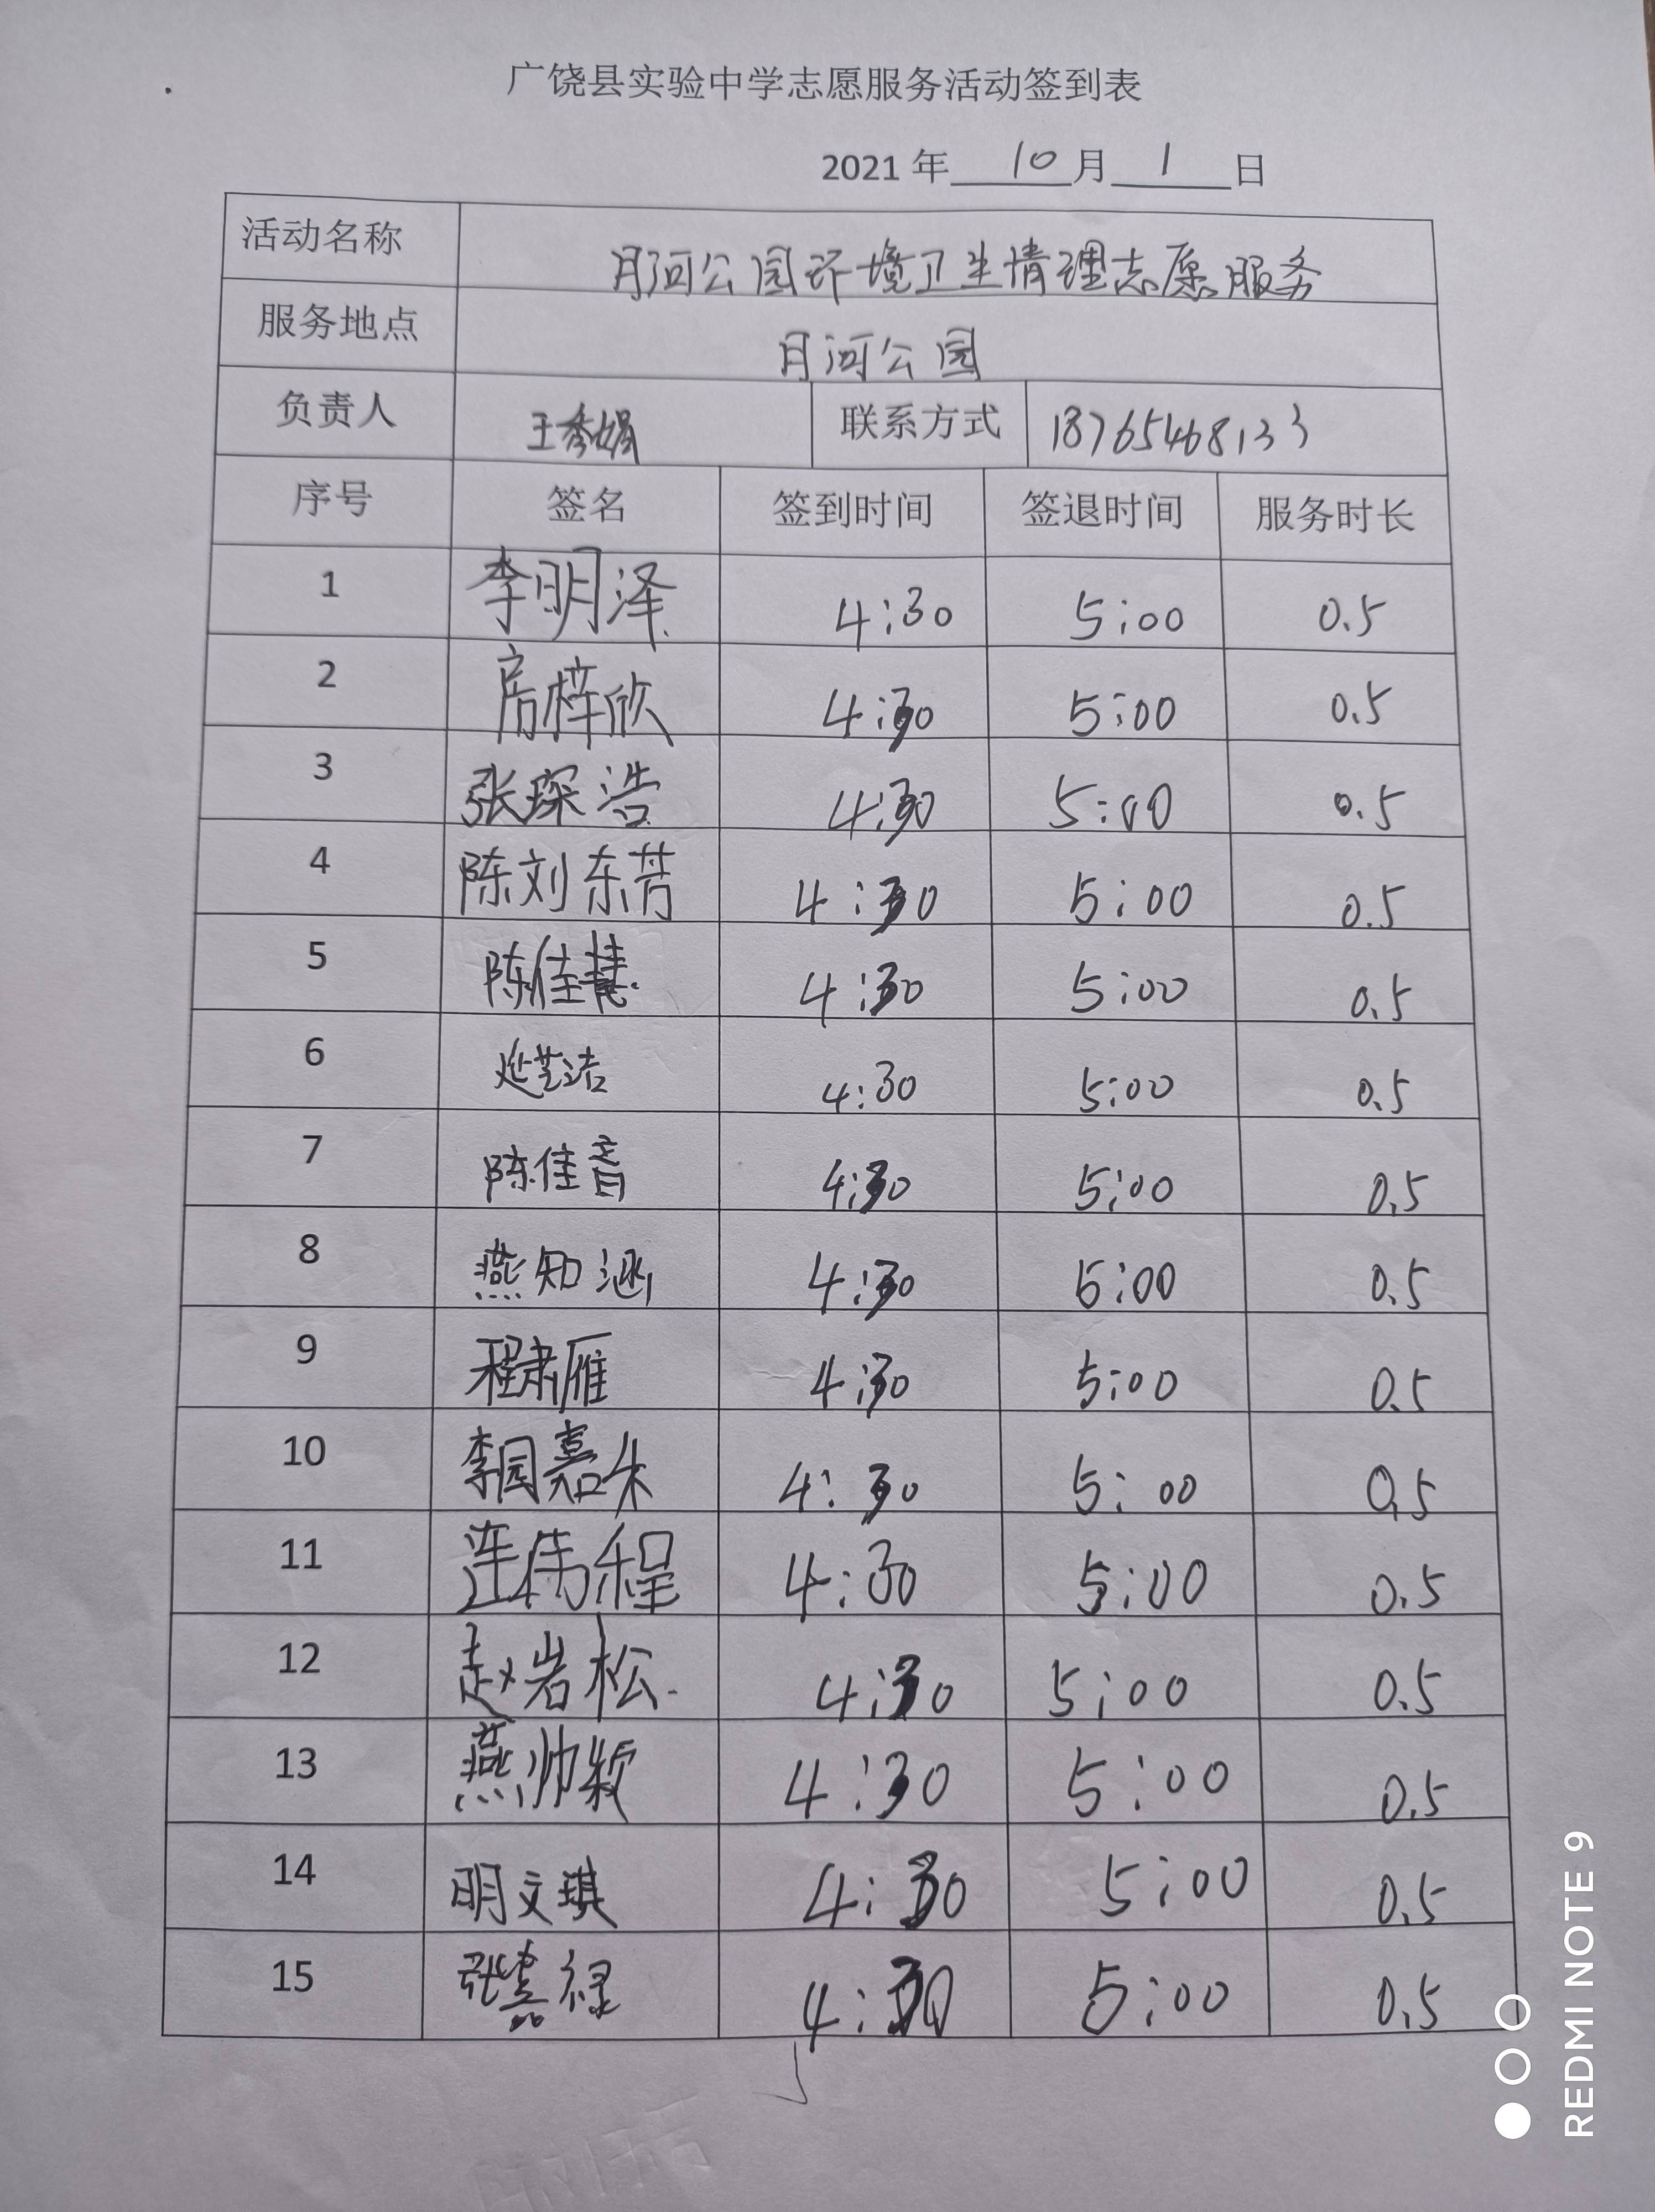 广饶县实验中学志愿服务活动签到表
2021 年 10 月 1 日
活动名称 月河公园环境卫生清理志愿服务
服务地点 月河公园
负责人 王秀娟 联系方式 18765468133
序号 签名 签到时间 签退时间 服务时长
1 李明泽 4:30 5:00 0.5
2 房梓欣 4:30 5:00 0.5
3 张琛浩 4:30 5:00 0.5
4 陈刘东芳 4:30 5:00 0.5
5 陈佳慧 4:30 5:00 0.5
6 延艺洁 4:30 5:00 0.5
7 陈佳音 4:30 5:00 0.5
8 燕知涵 4:30 5:00 0.5
9 程肃雁 4:30 5:00 0.5
10 李园嘉朱 4:30 5:00 0.5
11 连伟程 4:30 5:00 0.5
12 赵岩松 4:30 5:00 0.5
13 燕帅 4:30 5:00 0.5
14 明文琪 4:30 5:00 0.5
15 张嘉禄 4:30 5:00 0.5
REDMI NOTE 9